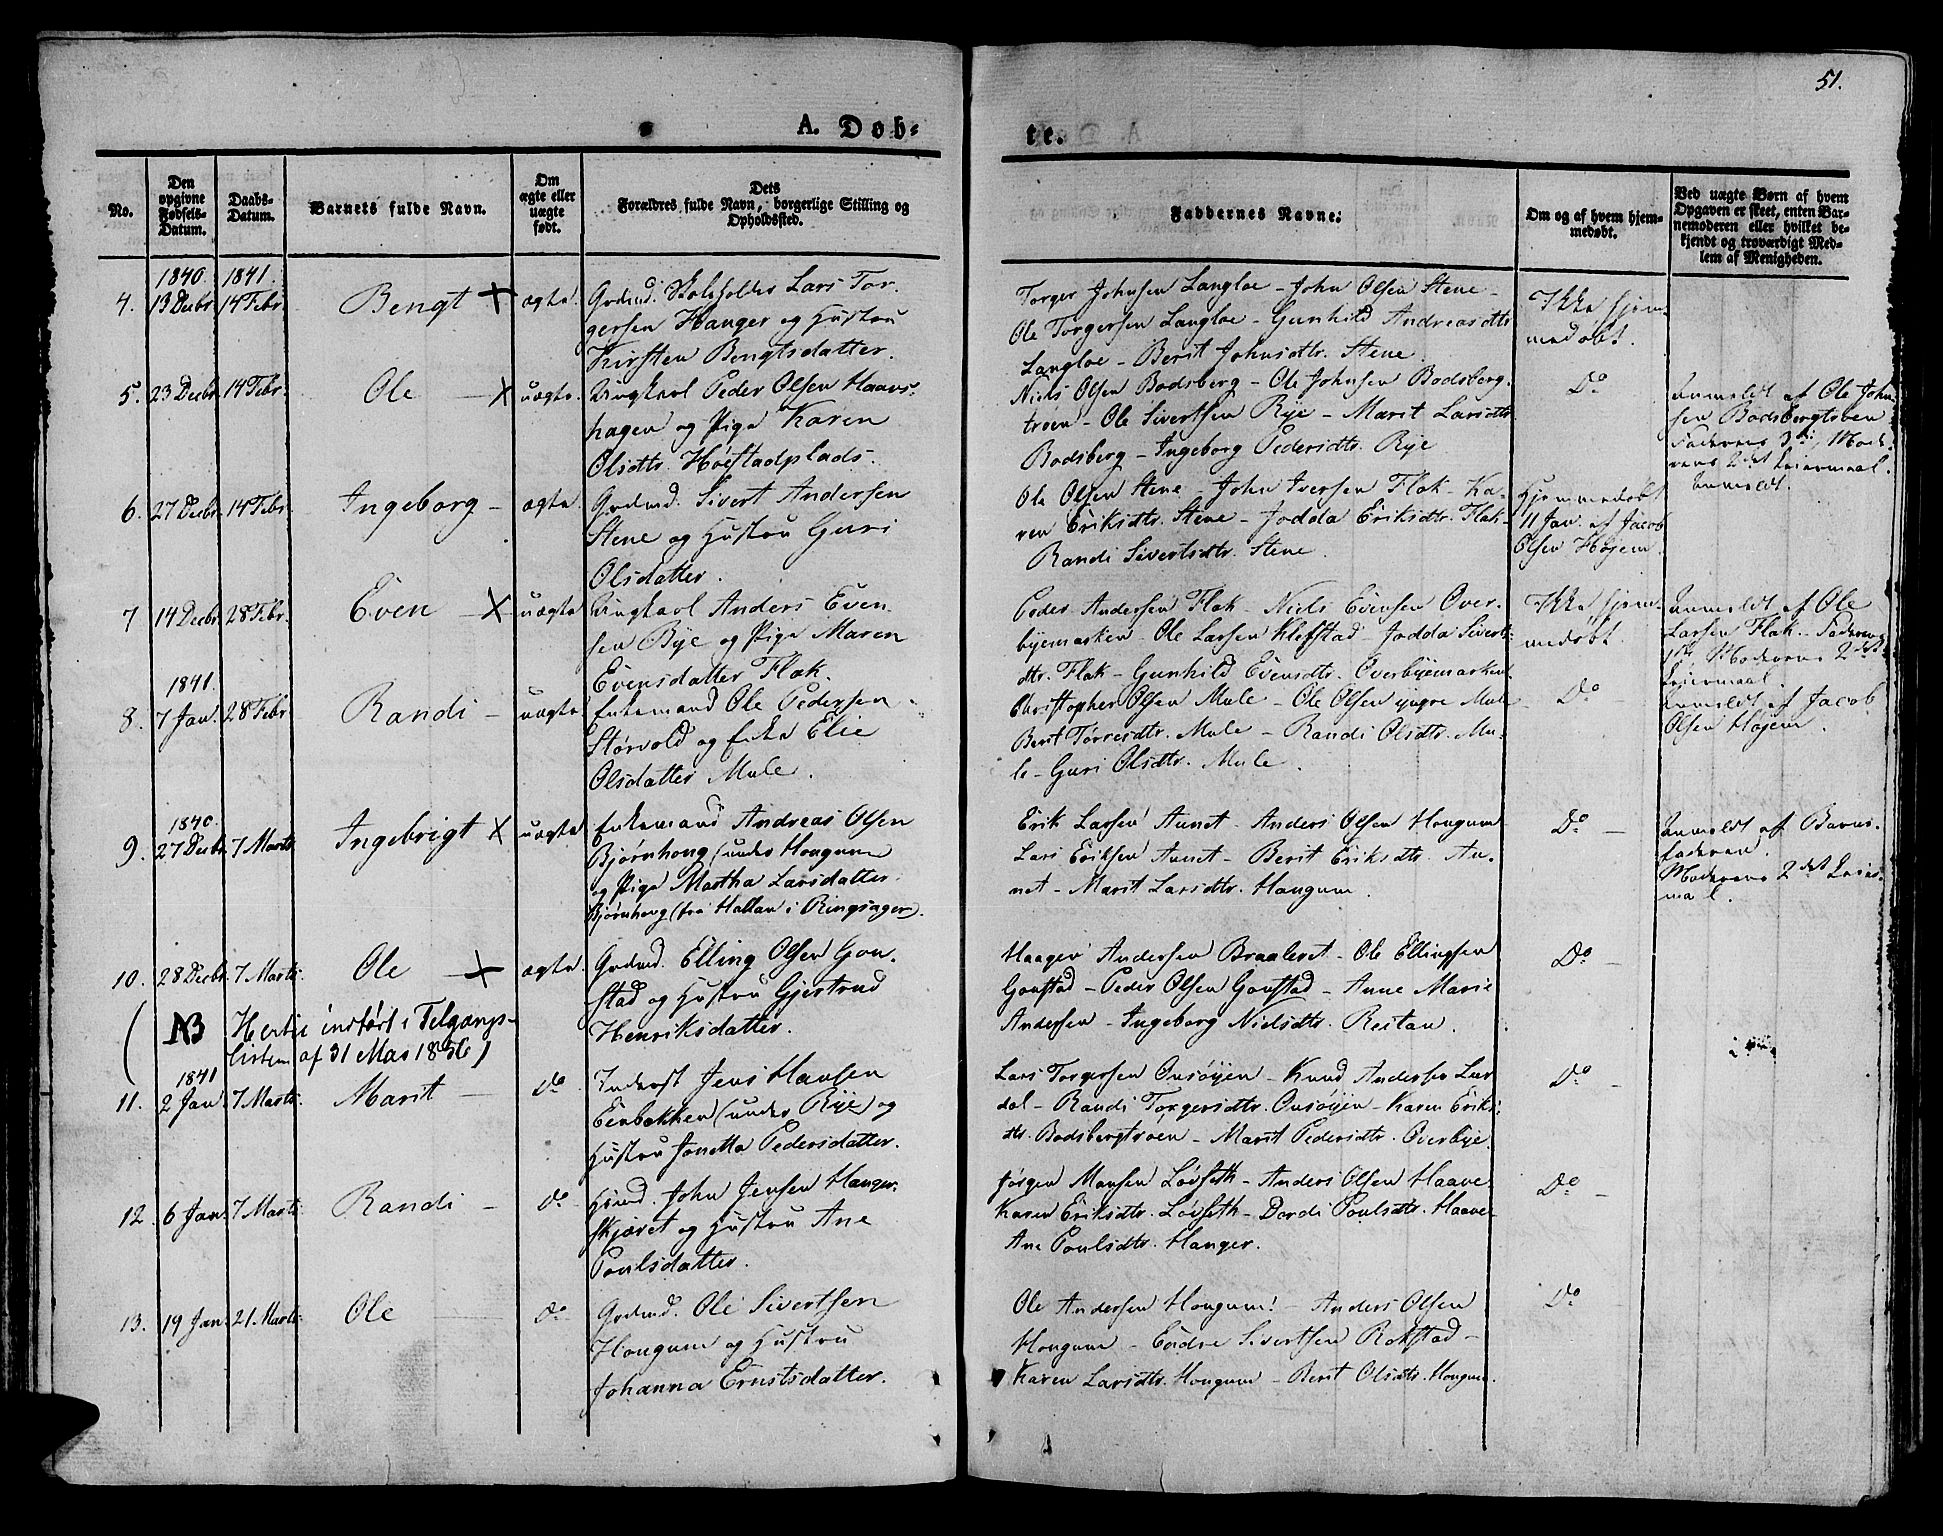 51.
A. Døb-
te.
No.
Den opgivne Fødsels-Datum.
Daabs-Datum.
Barnets fulde Navn.
Om ægte eller uægte født.
Dets Forældres fulde Navn, borgerlige Stilling og Opholdssted.
Faddernes Navne.
Om og af hvem hjem-medøbt.
Ved uægte Børn af hvem Opgaven er skeet, enten Bar-nemoderen eller hvilket be-kjendt og troværdigt Med-lem af Menigheden.
1840. 1841.
4. 13 Decbr. 14 Febr. Bengt + ægte.
Grdmd. Lars Tor-
gersen Hanger og Hustru
Kirsten Bengtsdatter.
Torger Johnsen Langloe - John Olsen Stene -
Ole Torgersen Langloe - Gunhild Andreasdtr
Langloe - Berit Johnsdtr. Stene.
Ikke hjem-
medøbt.
5. 23 Decbr. 14 Febr. Ole - x uægte.
Ungkarl Peder Olsen Haavs-
hagen og Pige Karen
Olsdtr. Høestadplads.
Niels Olsen Bodsberg - Ole Johnsen Bodsberg-
trøen - Ole Sivertsen Rye - Marit Larsdtr
Bodsberg - Ingeborg Pedersdtr. Rye
Do
Anmeldt af Ole John-
sen Bodsbergtrøen
Faderens 3die, Mode-
rens 2det Leiermaal.
Anmeldt.
6. 27 Decbr. 14 Febr. Ingeborg - ægte.
Grdmd. Sivert Andersen
Stene og Hustru Guri
Olsdatter.
Ole Olsen Stene - John Iversen Flak - Ka-
ren Eriksdtr. Stene - Jodda Eriksdtr. Flak -
Randi Sivertsdtr. Stene.
Hjemmedøbt
11 Jan. af Jacob
Olsen Højem.
7 14 Decbr. 28 Febr. Even - x uægte
Ungkarl Anders Even-
sen Bye og Pige Maren
Evensdatter Flak.
Peder Andersen Flak - Niels Evensen Over-
byemarken - Ole Larsen Klefstad - Jodda Siverts-
dtr. Flak - Gunhild Evensdtr. Overbyemarken.
Ikke hjem-
medøbt.
Anmeldt af Ole
Larsen Flak. Faderens
1ste Moderens 2det
Leiermaal.
1841.
8. 7 Jan. 28 Febr Randi - uægte
Enkemand Ole Pedersen
Størvold og Enke Elie
Olsdatter Mule.
Christopher Olsen Mule - Ole Olsen yngre Mule
Berit Torresdtr. Mule - Randi Olsdtr. Mu-
le - Guri Olsdtr. Mule.
Do -
Anmeldt af Jacob
Olsen Højem.
1840.
9. 27 Decbr. 7 Marts Ingebrigt x uægte
Enkemand Andreas Olsen
Bjørnhoug (under Hougum
og Pige Martha Larsdatter.
Bjørnhoug (fra Hallan i Ringsager).
Erik Larsen Aunet - Anders Olsen Hougum
Lars Eriksen Aunet - Berit Eriksdtr. Au-
net - Marit Larsdtr. Hougum.
Do -
Anmeldt af Barne-
faderen.
Moderens 2det Leier-
maal.
10. 28 Decbr. 7 Marts. Ole - x ægte.
Grdmd. Elling Olsen Gon-
stad og Hustru Gjertrud
Henriksdatter.
Haagen Andersen Braaleret - Ole Ellingsen
Gonstad - Peder Olsen Gonstad - Anne Marie
Andersen - Ingeborg Nielsdtr. Reitan.
Do -
( NB Hertil indført i Tilgangs-
listen af 31 Mai 1856)
1841
11. 2 Jan. 7 Marts. Marit - do
Inderst Jens Hansen
Eenbakken (under Rye) og
Hustru Jonetta Pedersdatter.
Lars Torgersen Ousøyen - Knud Andersen Lur-
dal - Randi Torgersdtr. Ousøyen - Karen Eriks-
dtr. Bodsbergtrøen - Marit Pedersdtr. Overbye.
Do -
12. 6 Jan. 7 Marts. Randi - do.
Hsmd. John Jensen Hanger-
skjæret og Hustru Ane
Poulsdatter.
Jørgen Monsen Løvseth - Anders Olsen Haave
Karen Eriksdtr. Løvseth - Dordi Poulsdtr. Haave
Ane Poulsdtr. Hanger.
Do -
13. 19 Jan. 21. Marts. Ole do.
Grdmd. Ole Sivertsen
Hougum og Hustru
Johanna Ernstsdatter.
Ole Andersen Hougum - Anders Olsen
Hougum - Endre Sivertsen Rokstad -
Karen Larsdtr. Hougum - Berit Olsdtr. Hougum.
Do -